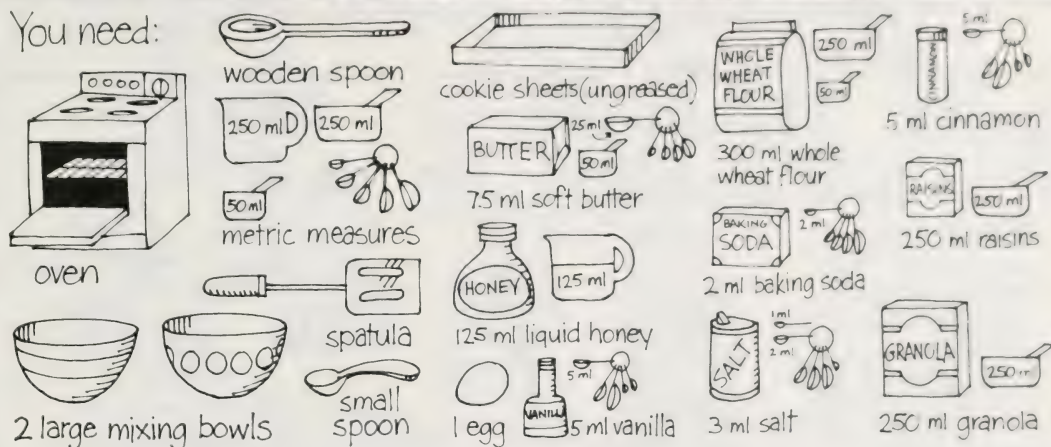 You need:
oven
2 large mixing bowls
wooden spoon
250 ml
250 ml
50 ml
metric measures
spatula
small
spoon
cookie sheets (ungreased)
BUTTER
25 ml
50 ml
75 ml soft butter
HONEY
125 ml
125 ml liquid honey
1 egg
VANILLA
5 ml
5 ml vanilla
WHOLE
WHEAT
FLOUR
250 ml
50 ml
300 ml whole
wheat flour
BAKING
SODA
2 ml
2 ml baking soda
SALT
1 ml
2 ml
3 ml salt
CINNAMON
5 ml
5 ml cinnamon
RAISINS
250 ml
250 ml raisins
GRANOLA
250 m
250 ml granola